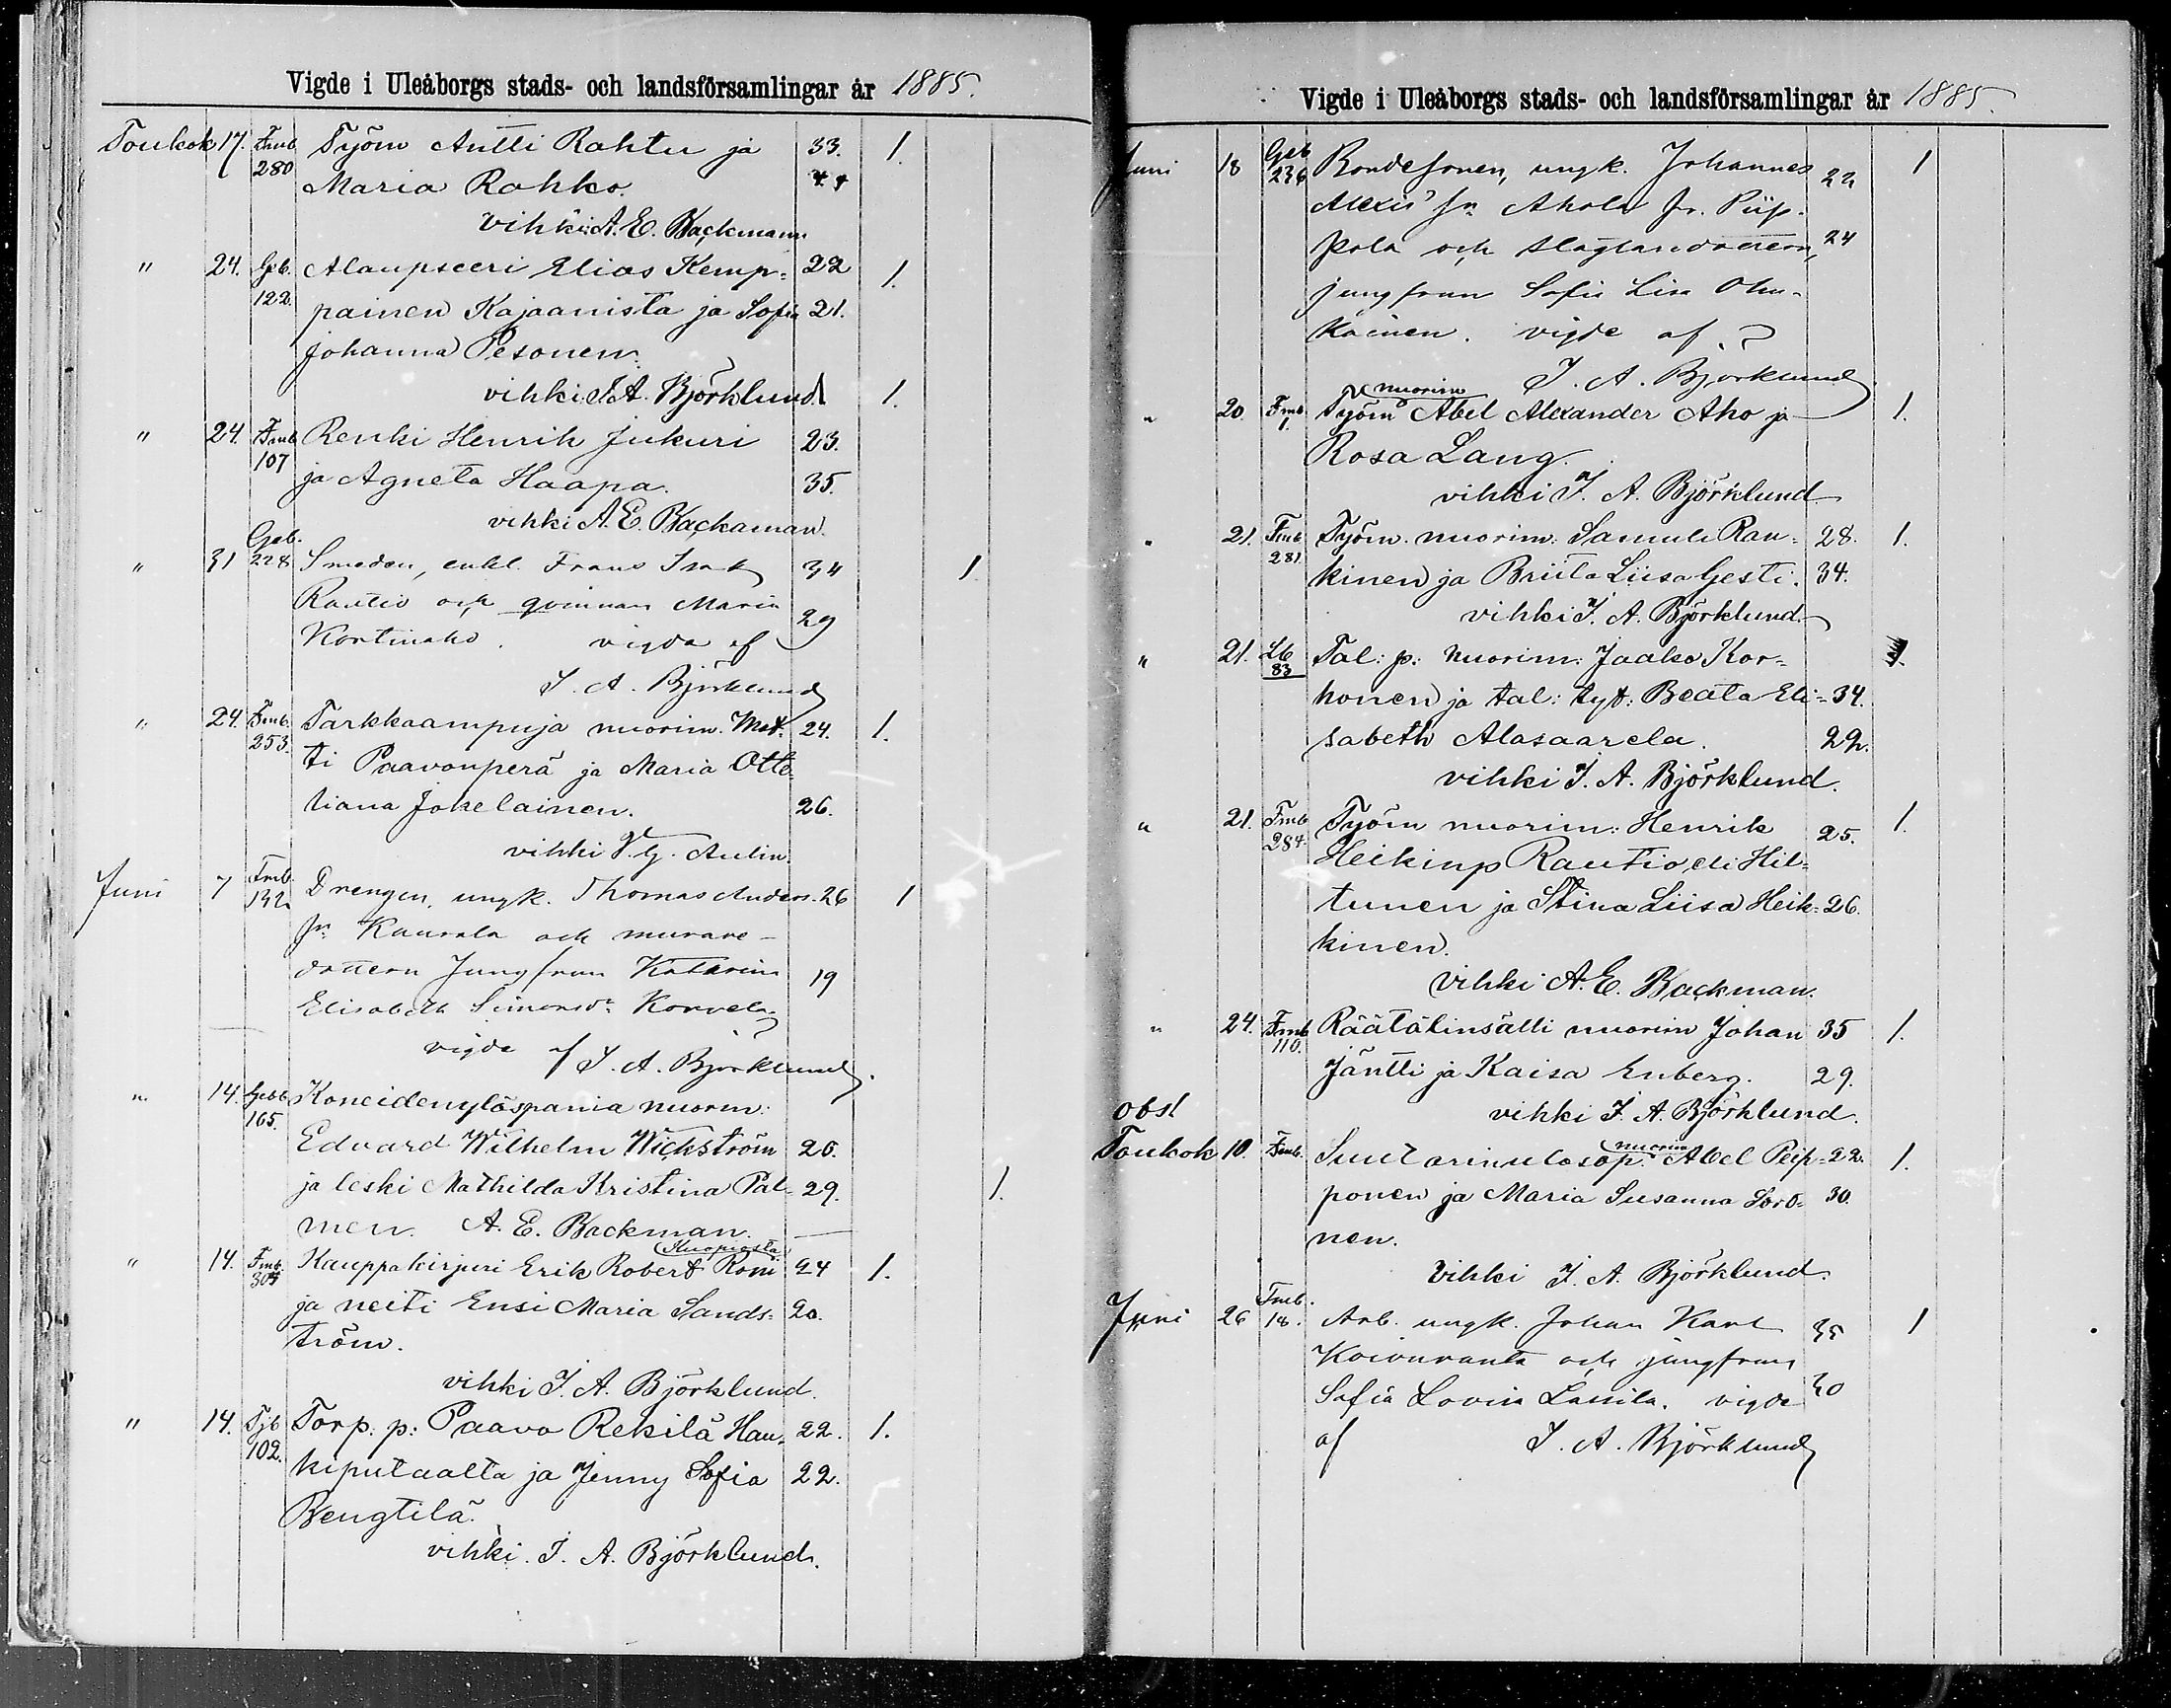 Vigde i Uleåborgs stads- och landsförsamlingar år 1885.
Toukok 17. Fmb Työm Antti Rahtu ja 33. 1.
280 Maria Rahko. 44
vihki A. E. Backman.
" 24. Geb. Alaupseeri Elias Kemp- 22 1.
122. painen Kajaanista ja Sofia 21.
Johanna Pesonen.
vihki J. A. Björklund. 1.
" 24. Fmb Renki Henrik Jukuri 23.
107 ja Agneta Haapa. 35.
vihki A. E. Backaman.
Geb.
" 31 228 Smeden, enkl. Frans Isak 34 1
Rautio och qvinnan Maria 29
Kortinaho. vigda af
J. A. Björklund
" 24. Fmb. Tarkkaampuja nuorim. Mat- 24. 1.
253. ti Paavonperä ja Maria Otte-
liana Jokelainen. 26.
vihki V. G. Aulin.
Juni 7 Fmb. Drengen, ungk. Thomas Anders- 26 1
192 sn Kaurala och murare-
dottern Jungfrun Katarina 19
Elisabeth Simonsdr Korvela
vigde af J. A. Björklund.
" 14. Gebb Koneidenylöspania nuorm:
165. Edvard Wilhelm Wickström 26.
ja leski Mathilda Kristina Pal- 29. 1.
men. A. E. Backman.
Kuopiosta
" 14. Fmb. Kauppakirjuri Erik Robert Roni 24 1.
305 ja neiti Ensi Maria Sands- 20.
tröm.
vihki J. A. Björklund.
" 14. Tjb Torp. p: Paavo Rekilä Hau- 22. 1.
102. kiputaalta ja Jenny Sofia 22.
Bengtilä.
vihki. J. A. Björklund.
Vigde i Uleåborgs stads- och landsförsamlingar år 1885.
Juni 18 Geb Bondesonen, ungk. Johannes 22 1
236 Alexis' sn Ahola fr. Piip-
pola och slagtaredottern, 24
jungfrun Sofia Lisa
vigde af
J. A. Björklund
nuorim
" 20. Fmb Työm Abel Alexander Aho ja 1.
1. Rosa Lang.
vihki J. A. Björklund
" 21. Fmb Työm. nuorim: Samuli Ran- 28. 1.
281 kinen ja Briita Liisa Gesti. 34.
vihki J. A. Björklund.
" 21. Lb Tal: p: nuorim: Jaako Kor- 1.
83 honen ja tal: tyt: Beata Eli- 34.
sabeth Alasaarela. 22.
vihki J. A. Björklund.
" 21. Fmb Työm nuorim: Henrik 25. 1.
284. Heikinp Rautio eli Hil-
tunen ja Stina Liisa Heik- 26.
kinen.
vihki A. E. Backman.
" 24. Fmb Räätälinsälli nuorim Johan 35 1.
110. Jäntti ja Kaisa Enberg. 29.
obs! vihki J. A. Björklund.
nuorim
Toukok 10. Fmb. Suutarinulosop. Abel Peip- 22. 1.
ponen ja Maria Susanna Soro- 30.
nen.
Vihki J. A. Björklund.
Fmb.
Juni 26 18. Arb. ungk. Johan Karl 35 1
Koivuranta och jungfrun
Sofia Lovisa Lassila. vigde 30
af J. A. Björklund